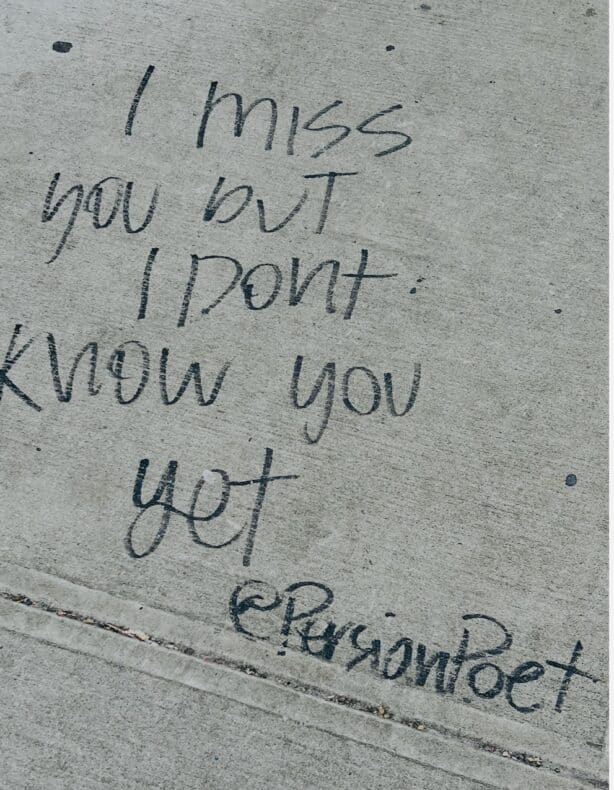 I miss
you but
I Dont
know you
yet
@PersionPoet